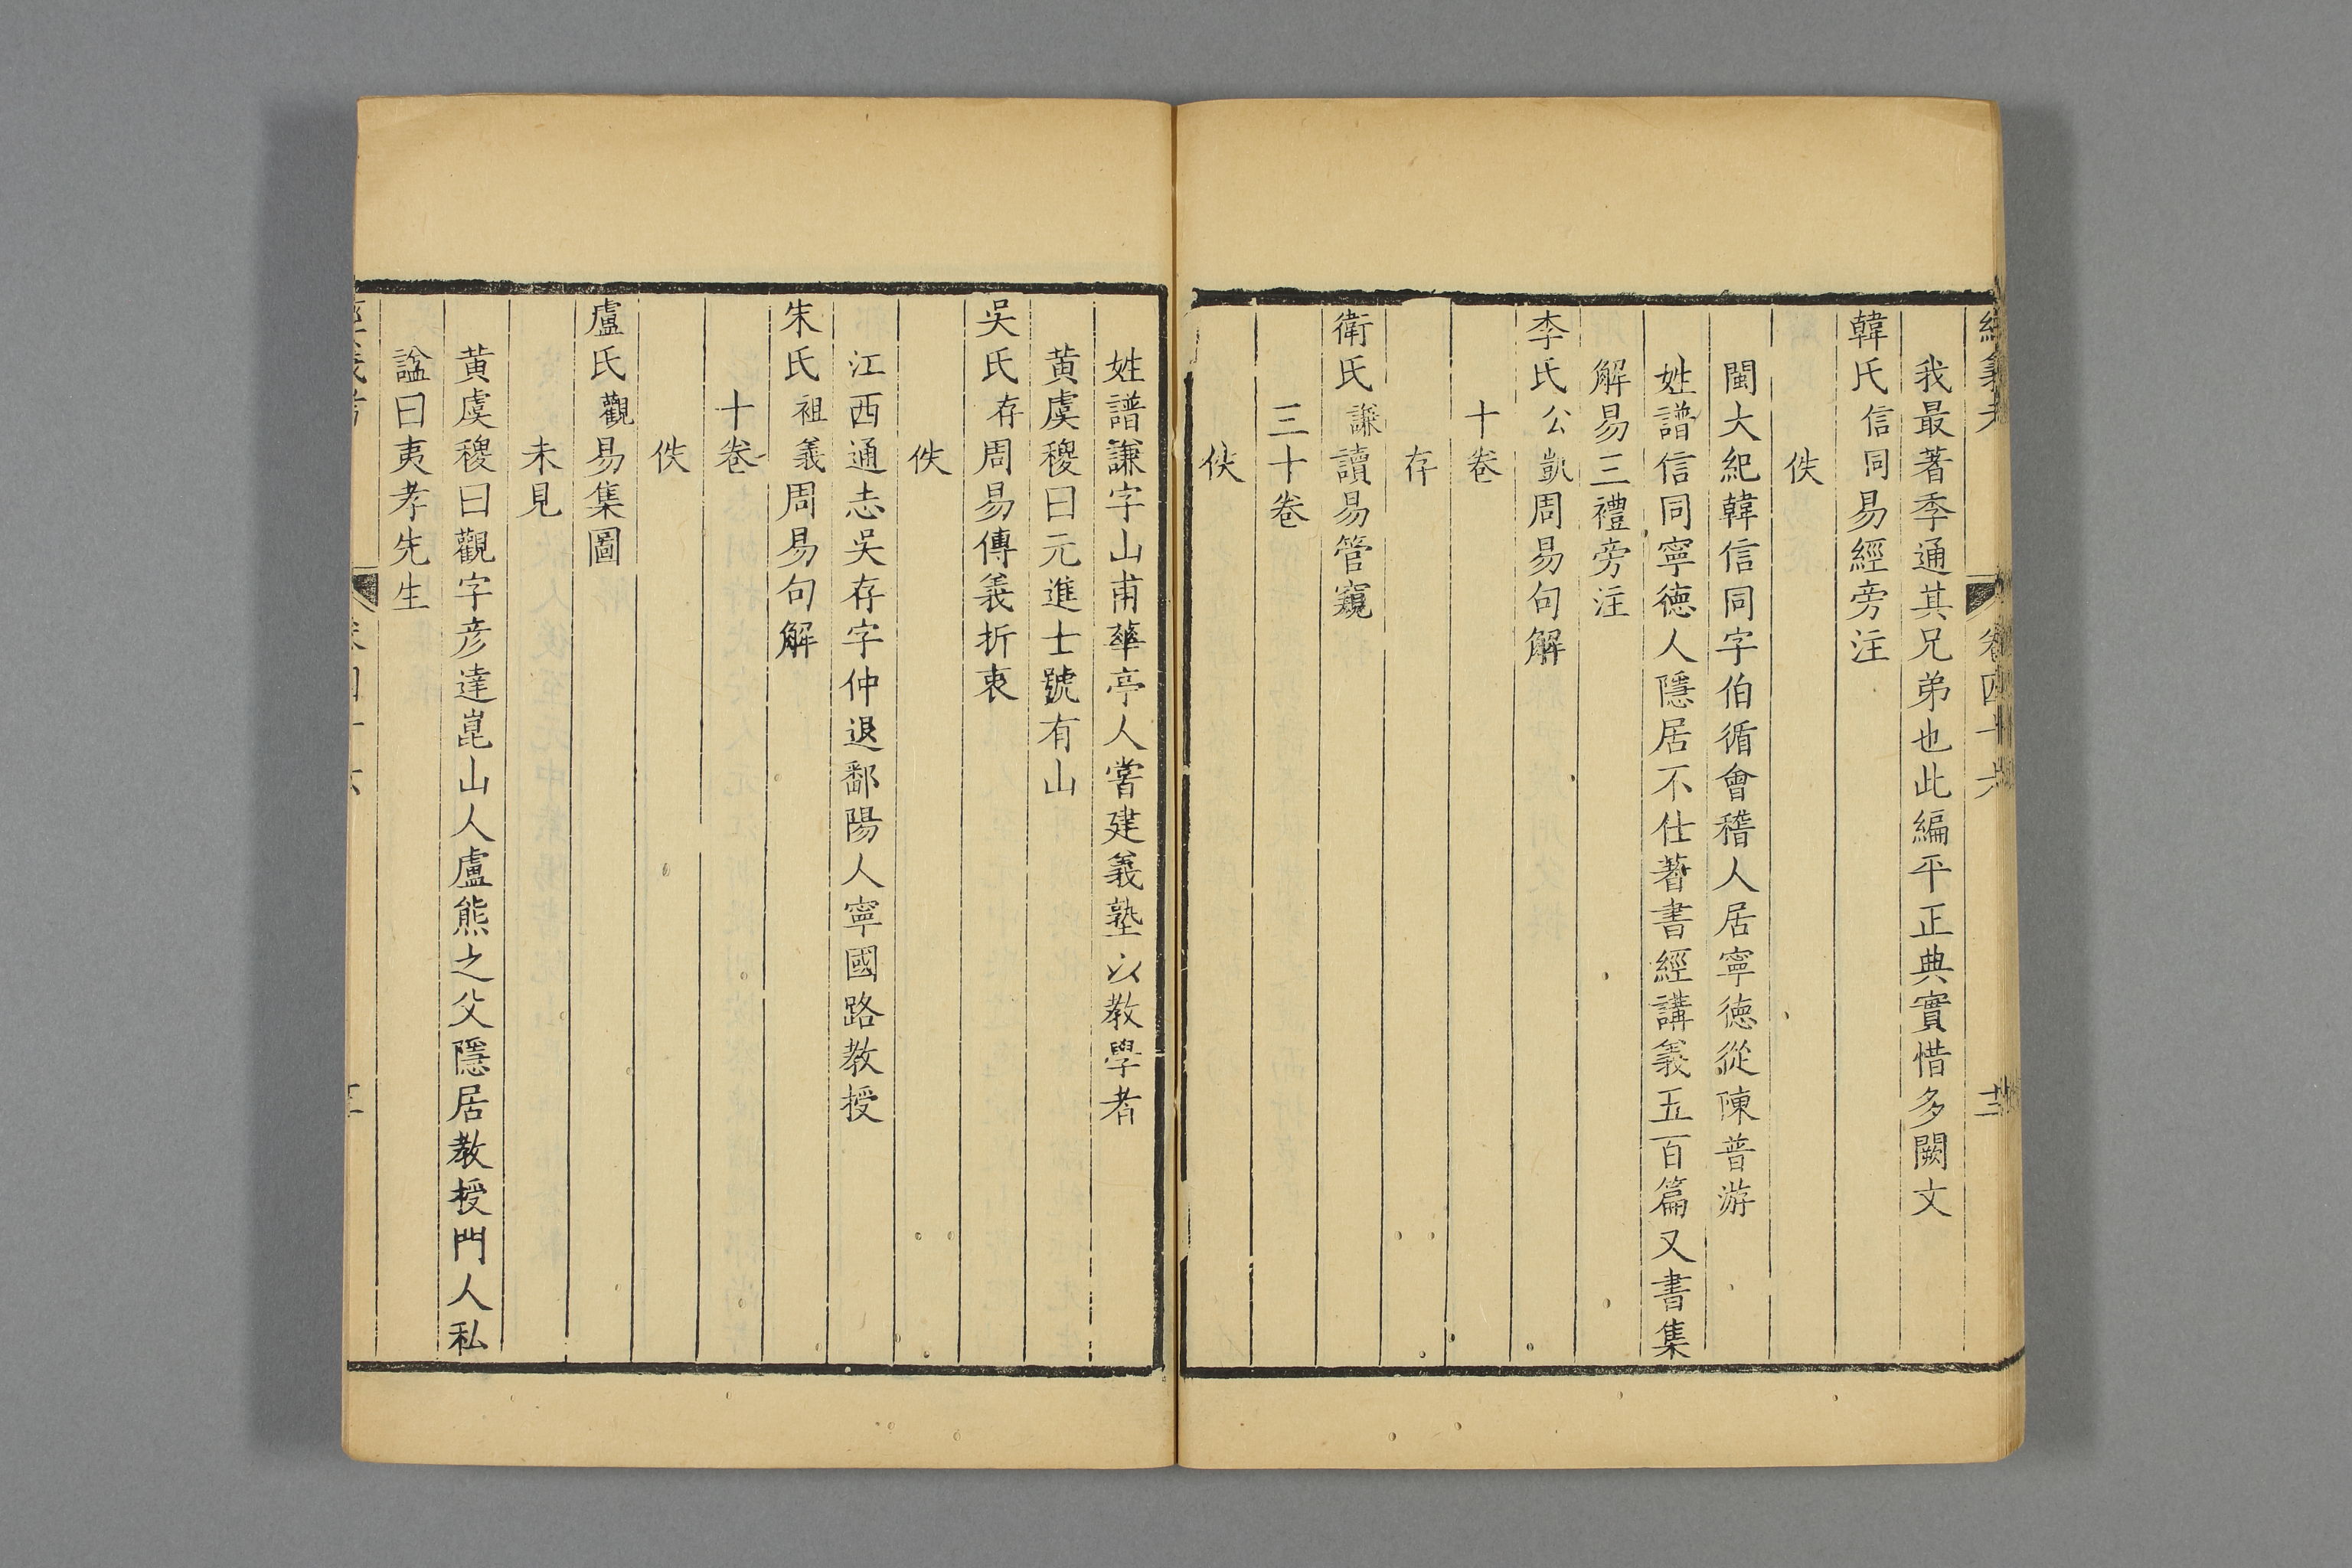 經義考 卷四十六 十三
我最著季通其兄弟也此編平正典實惜多闕文
韓氏信同易經旁注
佚
閩大紀韓信同字伯循會稽人居寧德從陳普游
姓譜信同寧德人隱居不仕著書經講義五百篇又書集
解易三禮旁注
李氏公凱周易句解
十卷
存
衛氏謙讀易管窺
三十卷
佚
姓譜謙字山甫華亭人嘗建義塾以教學者
黃虞稷曰元進士號有山
吳氏存周易傳義折衷
佚
江西通志吳存字仲退鄱陽人寧國路教授
朱氏祖義周易句解
十卷
佚
盧氏觀易集圖
未見
黃虞稷曰觀字彥達崑山人盧熊之父隱居教授門人私
諡曰夷孝先生